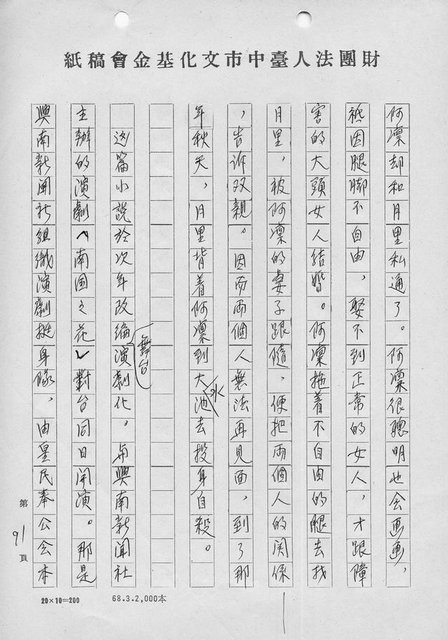 財團法人臺中市文化基金會稿紙
何凜却和月里私通了。何凜很聰明也会画画,
祗因腿脚不自由,娶不到正常的女人,才跟障
害的大頭女人結婚。何凜拖着不自由的腿去找
月里,被何凜的妻子跟隨,便把両個人的関係
,告訴双親。因而両個人無法再見面,到了那
年秋天,月里背着何凜到大水池去投身自殺。
这篇小說於次年改編舞台演劇化。与興南新聞社
主辦的演劇「南国之花」対台同日開演。那是
興南新聞社組織演劇挺身隊,由皇民奉公会本
第91頁
20×10=200
68.3.2,000本